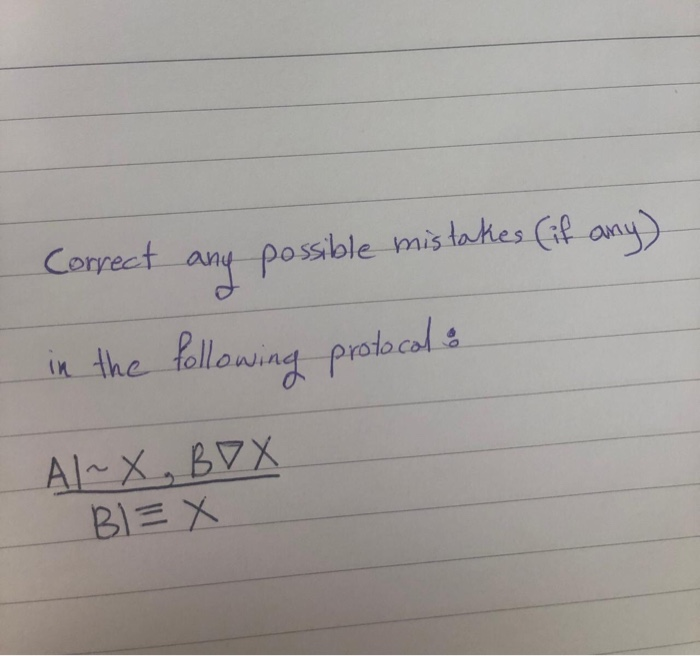 Correct any possible mistakes (if any)
in the following protocol :
A|~ X, B∇X
B|≡ X